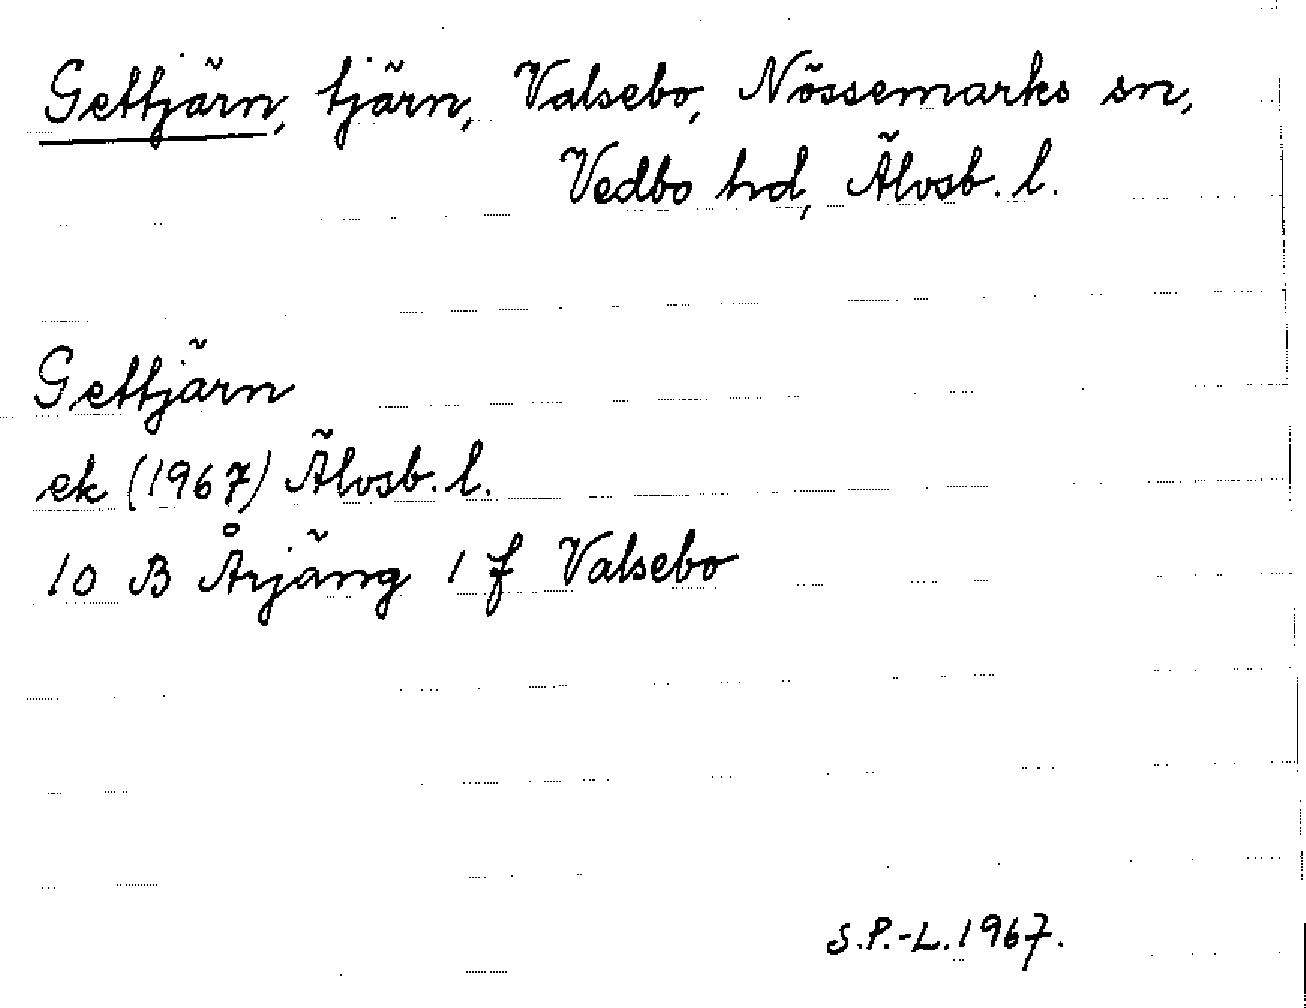 Gettjärn, tjärn, Valsebo, Nössemarks sn,
Vedbo hd, Älvsb. l.
Gettjärn
ek (1967) Älvsb. l.
10 B Årjäng 1 f Valsebo
S.P.-L. 1967.